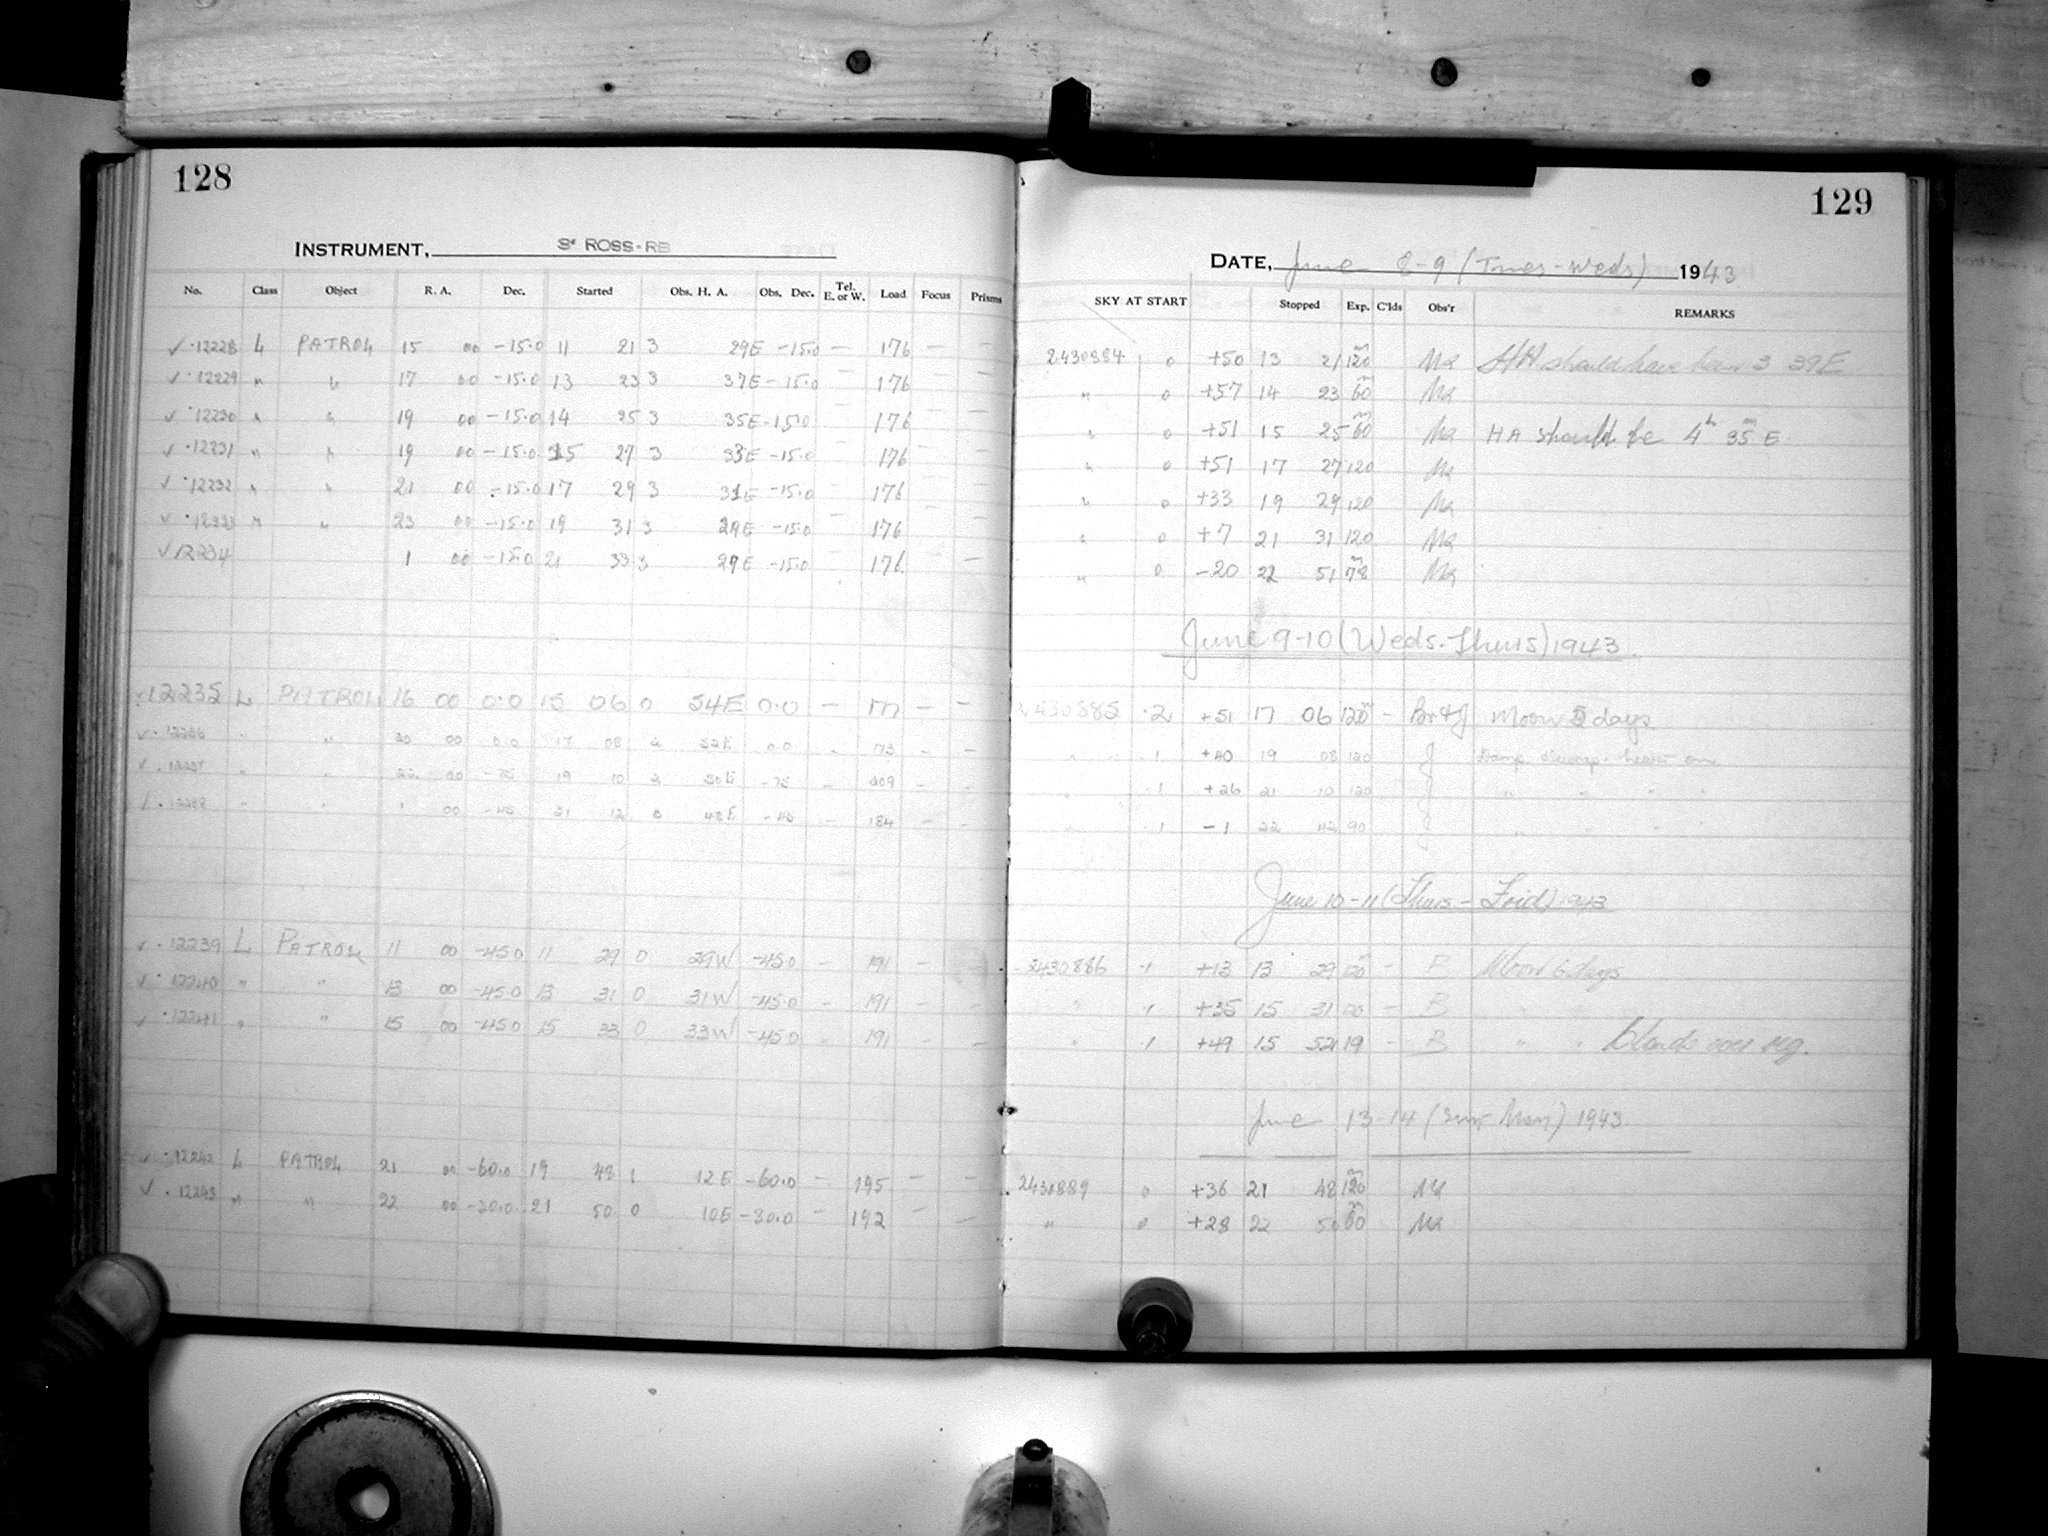 128
INSTRUMENT, 3" ROSS-RB
No. Class Object R. A. Dec. Started Obs. H. A. Obs. Dec. Tel. E. or W. Load Focus Prisms
✓ 12228 L PATROL 15 00 -15.0 11 21 3 29E -15.0 — 176 — —
✓ 12229 " " 17 00 -15.0 13 23 3 37E -15.0 — 176 — —
✓ 12230 " " 19 00 -15.0 14 25 3 35E -15.0 — 176 — —
✓ 12231 " " 19 00 -15.0 15 27 3 33E -15.0 — 176 — —
✓ 12232 " " 21 00 -15.0 17 29 3 31E -15.0 — 176 — —
✓ 12233 " " 23 00 -15.0 19 31 3 29E -15.0 — 176 — —
✓ 12234 1 00 -15.0 21 33 3 27E -15.0 176 —
12235 L PATROL 16 00 0.0 15 06 0 54E 0.0 — 177 — —
✓ 12236 " " 20 00 0.0 17 08 2 52E 0.0 173 — —
✓ 12237 " " 22 00 -75 19 10 2 50E -75 — 209 — —
12238 " " 1 00 -45 21 12 48E -45 — 184 — —
✓ 12239 L PATROL 11 00 -45.0 11 29 0 29W -45.0 — 191 — —
✓ 12240 " " 13 00 -45.0 13 31 0 31W -45.0 — 191 — —
✓ 12241 " " 15 00 -45.0 15 33 0 33W -45.0 — 191 — —
✓ 12242 L PATROL 21 00 -60.0 19 48 1 12E -60.0 — 195 — —
✓ 12243 " " 22 00 -30.0 21 50 0 10E -30.0 — 192 — —
129
DATE, June 8-9 (Tues-Weds) 1943
SKY AT START Stopped Exp. C'lds Obs'r REMARKS
2430884 0 +50 13 21 120 HA should have been 3 39E
" 0 +57 14 23 60
" 0 +51 15 25 60 HA should be 4h 35m E
0 +51 17 27 120
" 0 +33 19 29 120
" 0 +7 21 31 120
" 0 -20 22 51 78
June 9-10 (Weds-Thurs) 1943
2430885 .2 +51 17 06 120 — Br&J Moon 5 days
" .1 +40 19 08 120 J
" .1 +26 21 10 120 J " " " "
" .1 -1 22 42 90 J " " " "
June 10-11 (Thurs-Frid) 1943
2430886 .1 +13 13 29 120 — B Moon 6 days
" .1 +35 15 31 120 — B " "
" .1 +49 15 52 19 — B " " Clouds over
June 13-14 (Sun-Mon) 1943
2430889 0 +36 21 48 120
" 0 +28 22 50 60